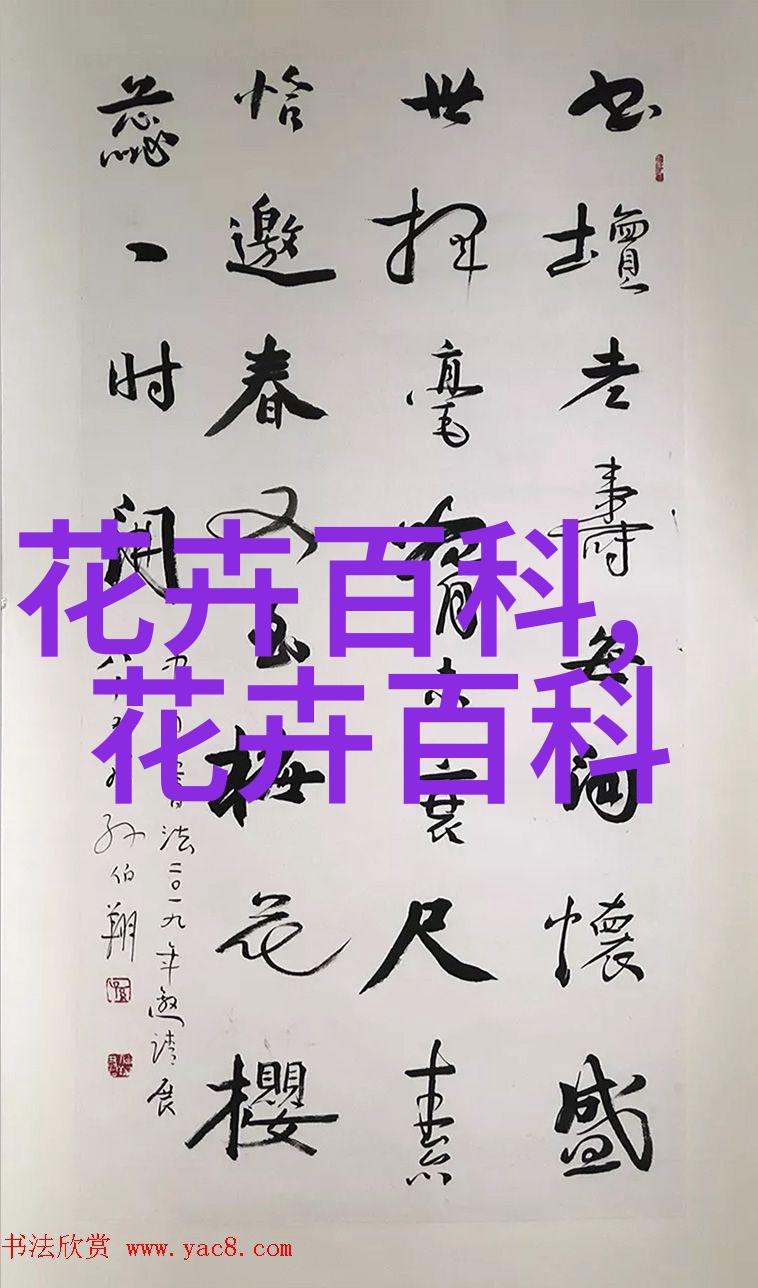 书壇老壽每開懷盛
世揮毫未衰尺素
恰邀春又梅花櫻
蕊一时開
書法二〇一九年邀請展
孫伯翔
花卉百科,
花卉百科
书法欣赏 www.yac8.com